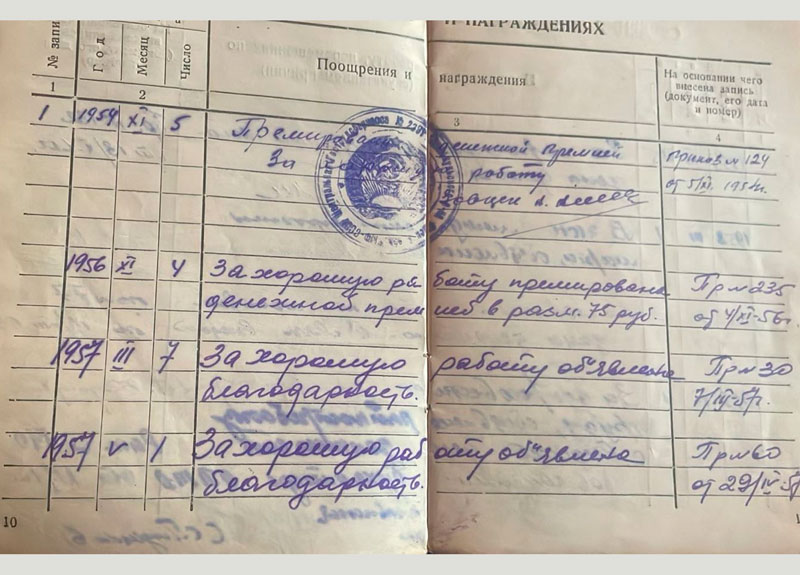 И НАГРАЖДЕНИЯХ
№ запи
Год
Месяц
Число
Поощрения и награждения
На основании чего внесена запись (документ, его дата и номер)
1 2 3 4
1 1954 XI 5 денежной премией Приказ № 124
За работу от 5/XI. 1954г.
1956 XI 4 За хорошую работу премирована Пр № 235
денежной премией в разм. 75 руб. от 4/XI-56г.
1957 III 7 За хорошую работу объявлена Пр № 30
благодарность. 7/III-57г.
1957 V 1 За хорошую работу объявлена Пр № 60
благодарность. от 29/IV-5
10